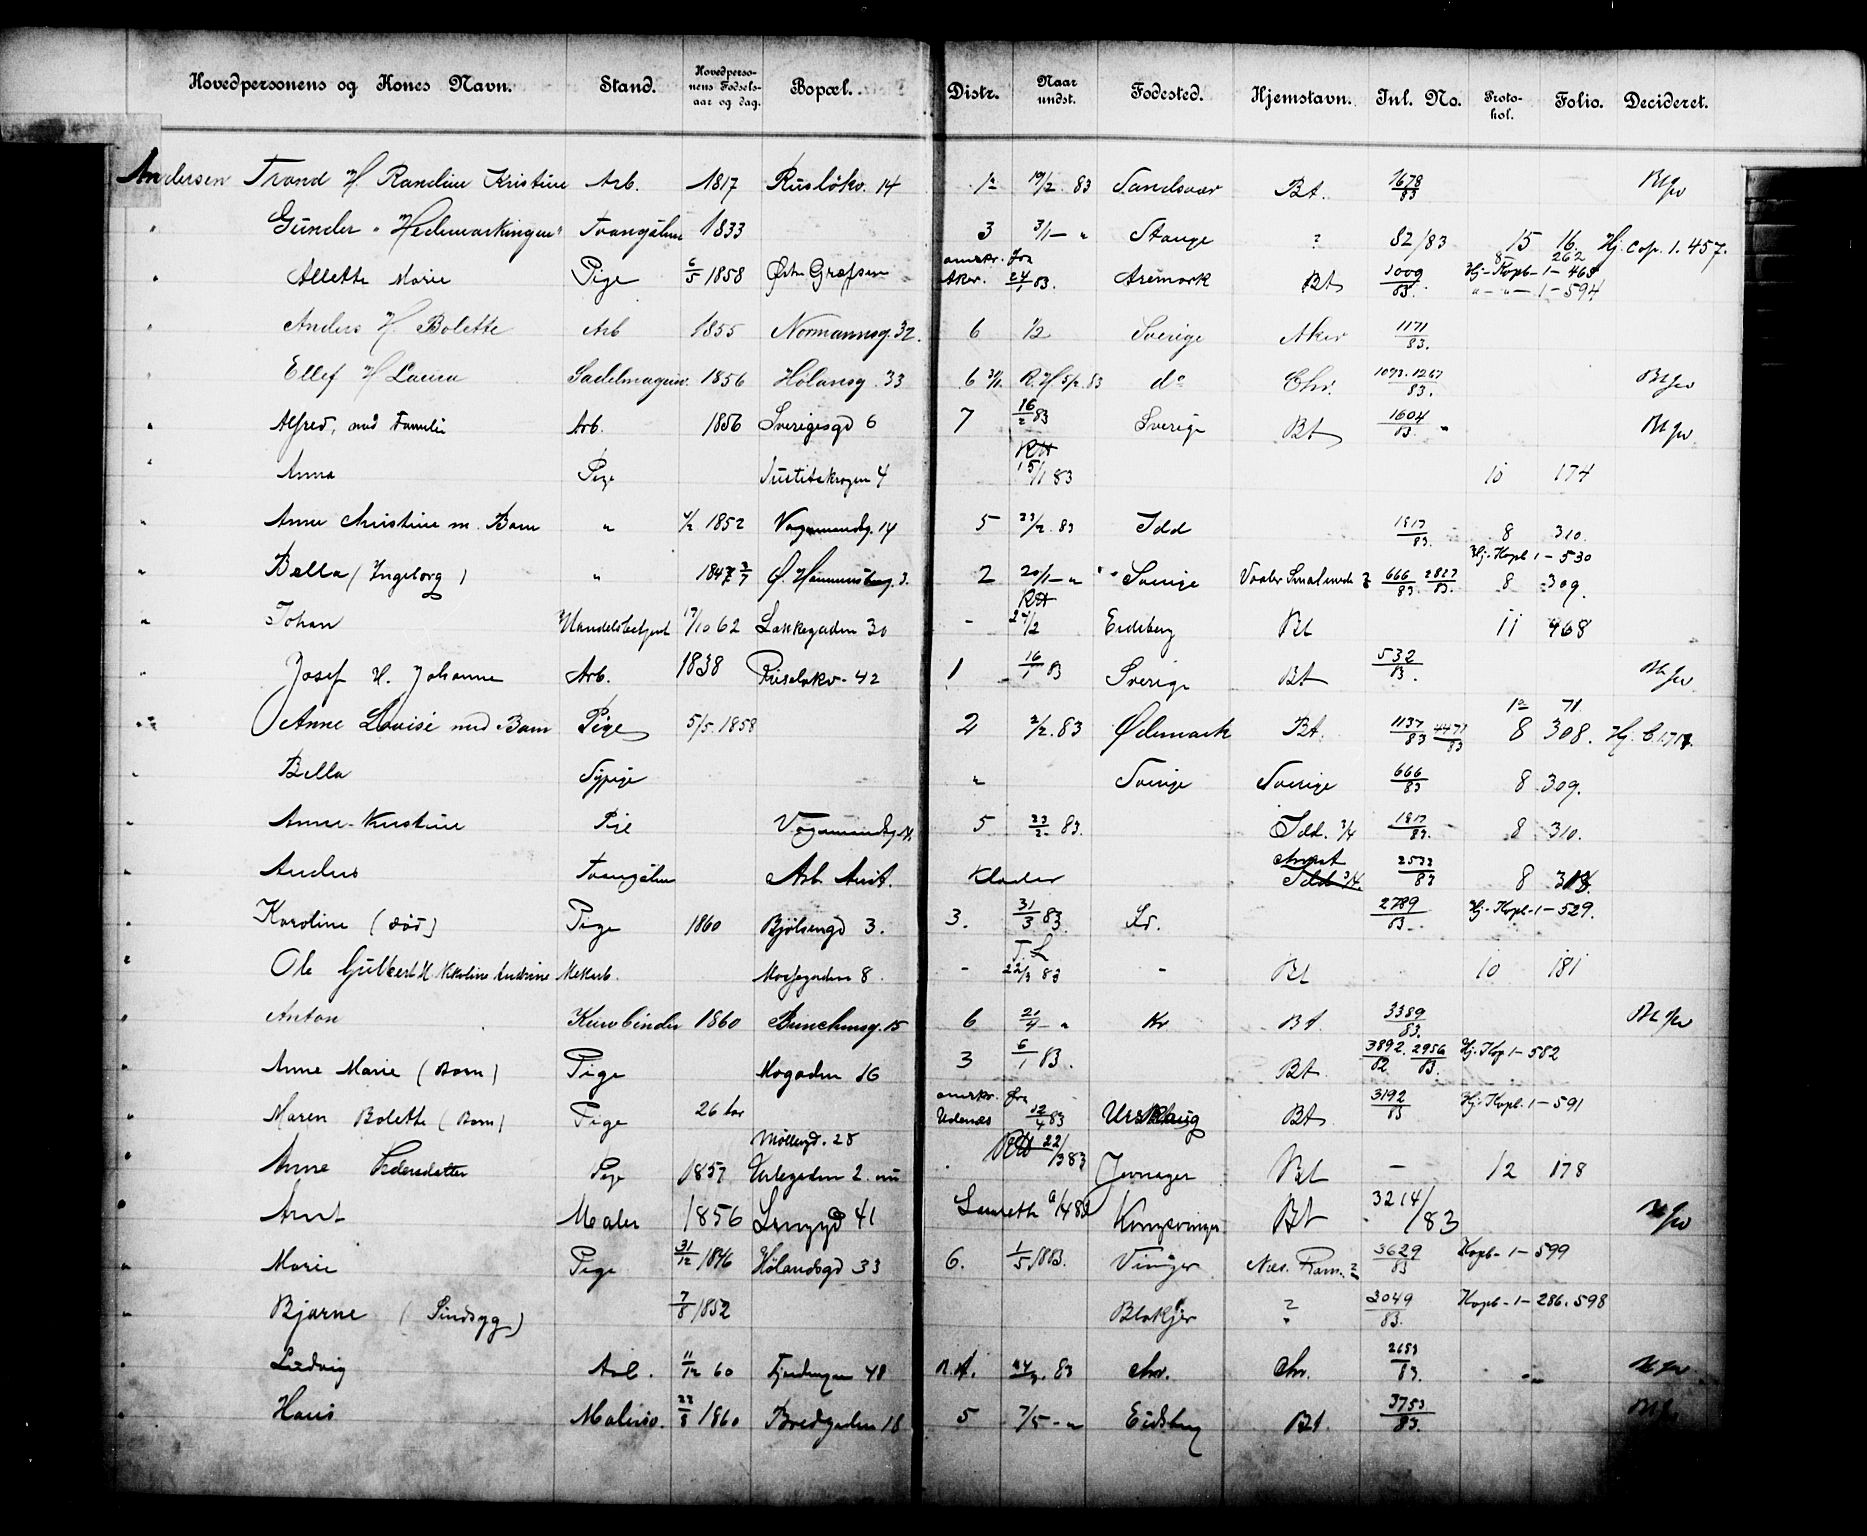 Hovedpersonens og Kones Navn. Stand. Hovedpersonens Fødselsaar og dag. Bopæl. Distr. Naar undst. Fødested. Hjemstavn. Jnl. No. Protokol. Folio. Decideret.
Andersen Trond H Randine Kristine Arb. 1817 Rusløkv. 14 1ª 19/2 83 Sandsvær Bt. 1678/83
" Gunder "Hedemarkingen" Tvangslem 1833 3 3/1 - " Stange ? 82/83 15 16 Hj. Cop. 1. 457.
8 262
" Allette Marie Pige 6/5 1858 Østre Grefsen overkr. fra Aker. 24/1 83. Aremark Bt 1009/83. Hj-Kopb-1-468
" - " - 1-594
" Anders H. Bolette Arb 1855 Normannsg. 32. 6 1/2 Sverige Aker 1171/83.
" Ellef H Laura Sadelmagersv. 1856 Hølansg. 33 6 R. H 5/2 83 do Chr. 1093.1267/83.
" Alfred, med Familie Arb. 1856 Sverigesgd 6 7 16/2 83 Sverige Bt 1604/83 "
" Anna Pige Justitskrogen 4 RH 15/1 83 10 174
" Anne Christine m. Barn " 4/2 1852 Vognmandsg. 14 5 23/2. 83 Idd 1817/83. 8 310.
Hj-Kopb 1-530
" Bella (Ingeborg) " 1847 3/7 Ø. Hammersborg. 3. 2 20/1 - " Sverige Vaaler Smalenede ? 666/83. 2827/83. 8 309.
" Johan Handelsbetjent 17/10 62 Lakkegaden 30 - RH 24/2 Eidsberg Bt 11 468
" Josef H. Johanne Arb. 1838 Ruseløkv - 42 1 16/1 83 Sverige Bt 532/83.
12 71
" Anne Lovise med Barn Pige 5/5. 1858 2 2/2. 83 Ødemark Bt. 1137/83 4471/83 8 308.
" Bella Sypige " Sverige Sverige 666/83 8 309.
" Anne-Kristine Pie Vognmandsg. 14. 5 23/2. 83. Idd. 3/4 1817/83. 8 310.
" Anders Tvangslem Arb. Anst. Klader 2533/83 8
" Karoline (død) Pige 1860 Bjølsengd 3. 3. 31/3 83. 2789/83 Hj-Kopb-1-529.
" Ole Gulbert H Nikoline Andrine Mekarb. Mossegaden 8. - 22/3 83 - Bt 10 181
" Anton Kurvbinder 1860 Bunchensg. 15 6 21/4 - " Kr Bt. 3389/83.
" Anne Marie (Barn) Pige Mogaden 16 3 6/1 83. Bt 3892/82. 2956/83. Hj-Kop 1-582
" Maren Bolette (Barn) Pige 26 aar overkr. fra Udenæs 12/4 83 Urskoug Bt 3192/83 Hj-Kopb. 1-591
Møllergd. 28
" Anne Pedersdatter Pige 1857 Urtegaden 2. nu 22/3 83 Jevnager Bt - 12 178
" Arnt Maler 1856 41 83 Kongsvinger Bt 3214/83
" Marie Pige 31/12 1846 Hølandsgd 33 6. 1/5 1883. Vinger Næs. Rom. ? 3629/83 Kopb-1-599
" Bjarne (Sindsyg) 7/8 1852 Blakjer ? 3049/83. Kopb-1-286.598
" Ludvig Arb. 11/12 60 Fjerdingen 48 83 Chr. Chr. 2653/83.
" Hans Malersv. 23/8 1860 Bredgaden 18 5 7/5 - " Eidsberg Bt. 3753/83.